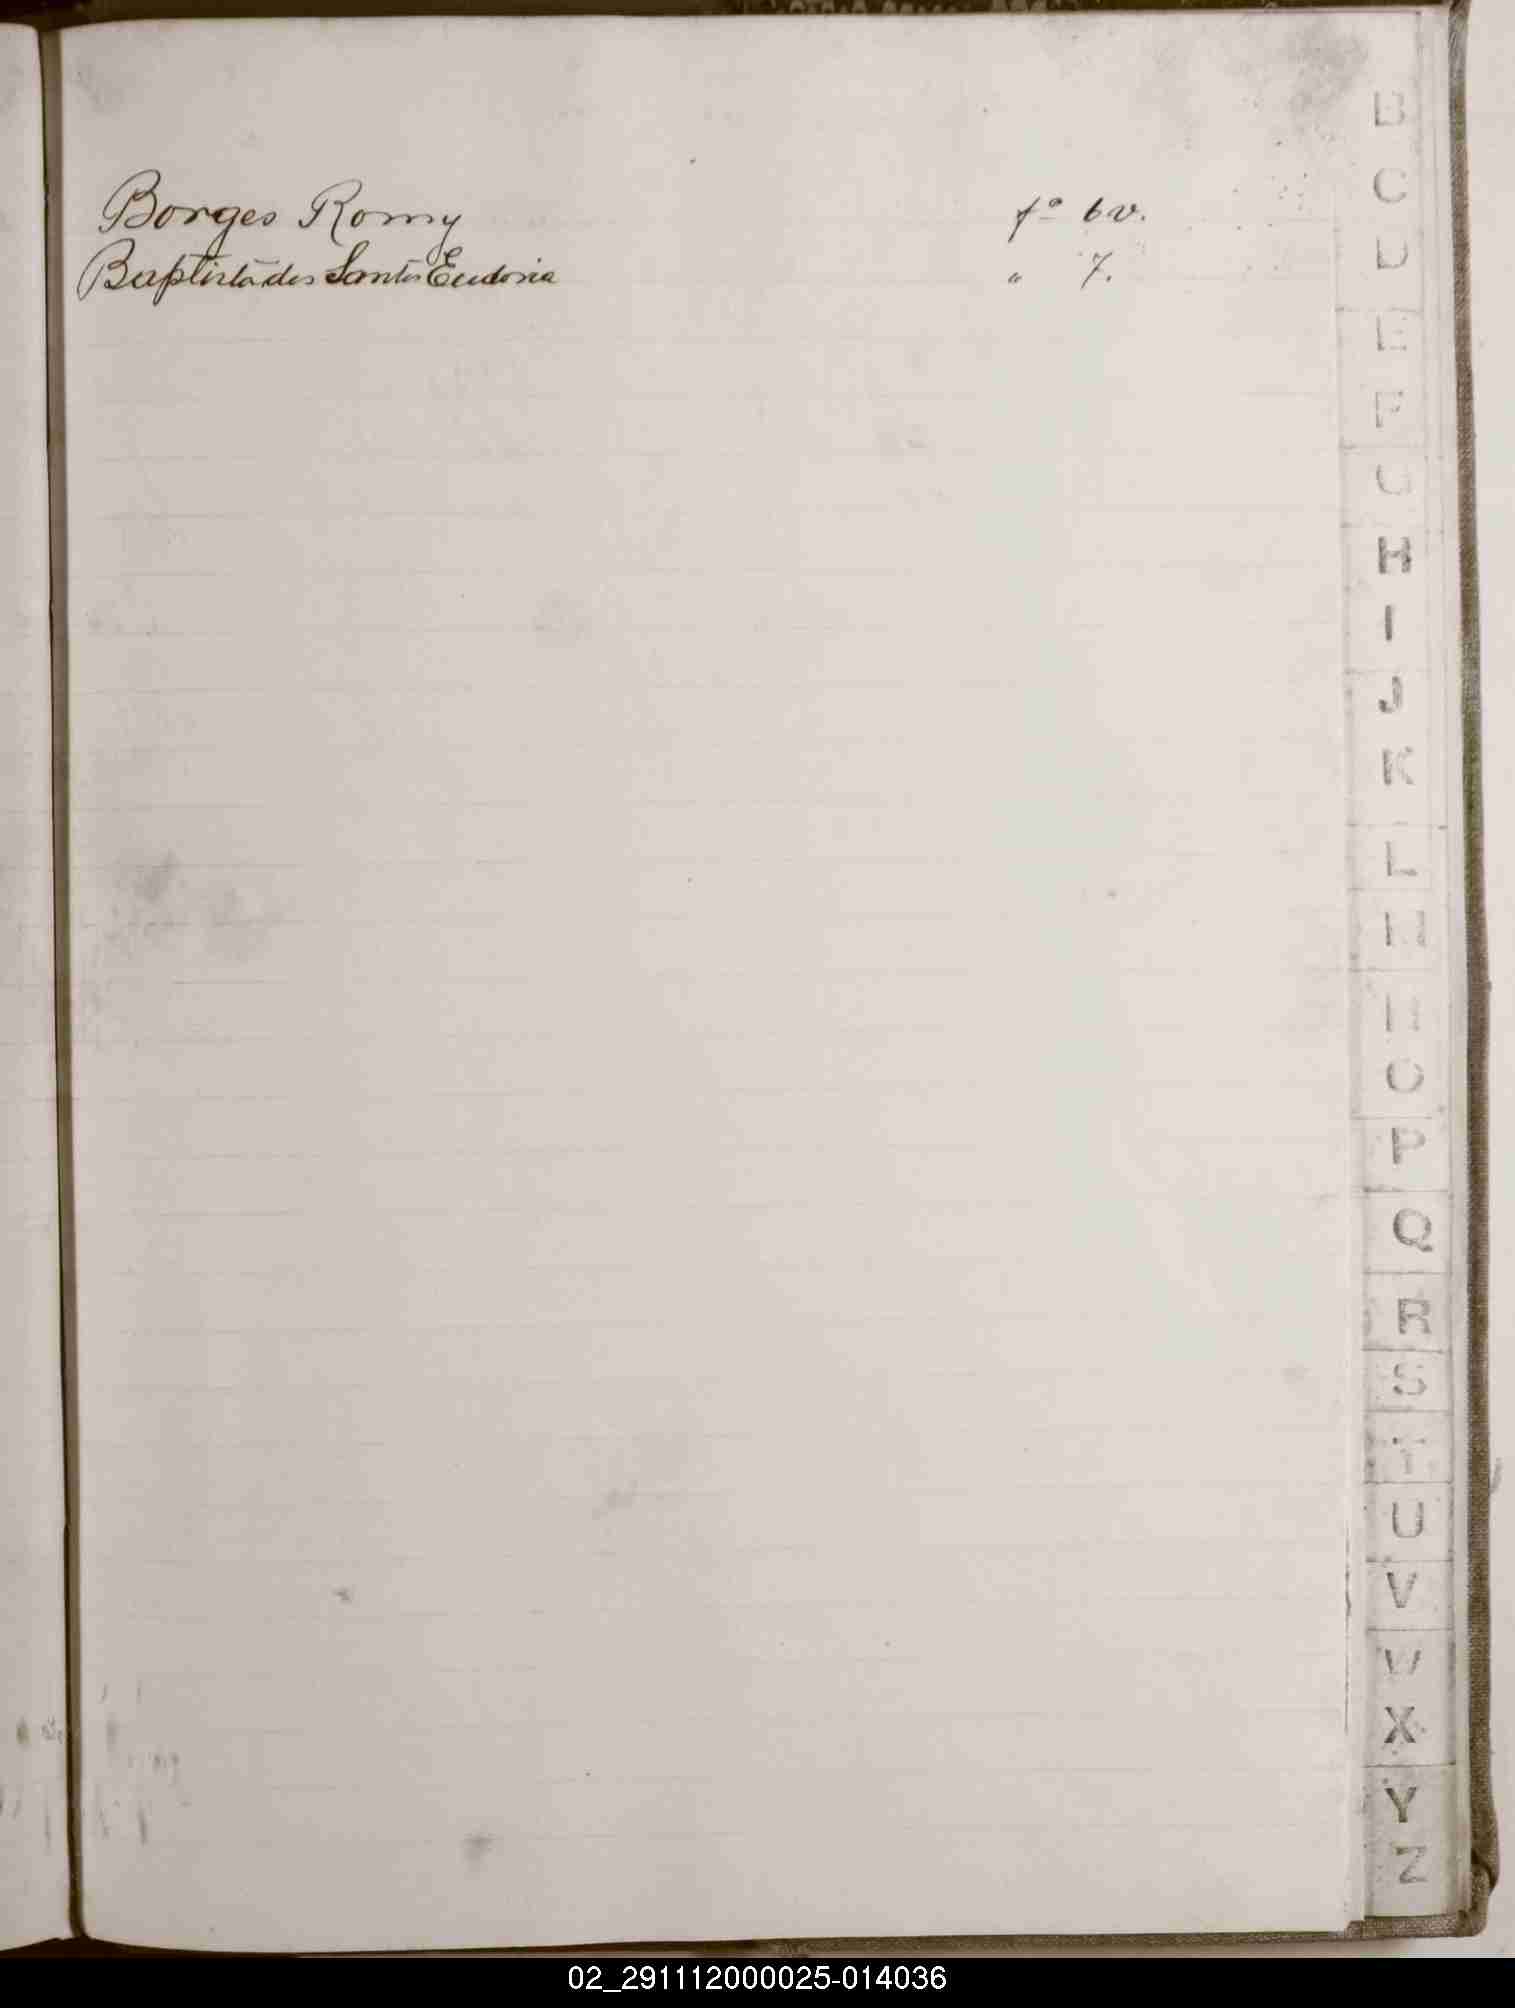 Borges Romy fº 6v.
Baptista dos Santos Eudoria " 7.
B
C
D
E
F
G
H
I
J
K
L
M
N
O
P
Q
R
S
T
U
V
W
X
Y
Z
02_291112000025-014036